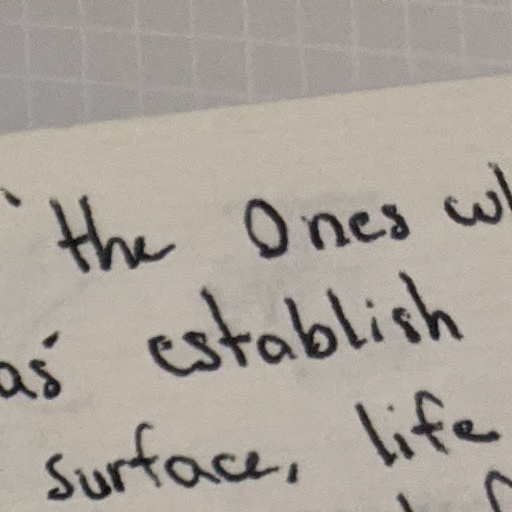 the Ones
as establish
surface, life